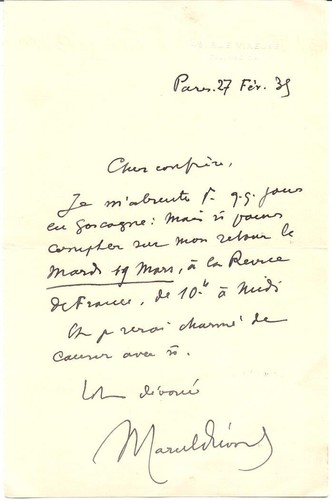 Paris. 27 Fév. 35
Cher confrère,
Je m'absente pr q.q. jours
en Gascogne : mais v. pouvez
compter sur mon retour le
Mardi 19 Mars, à la Revue
de France, de 10h à midi
Et je serai charmé de
causer avec v.
Votre dévoué
Marcel Prévost